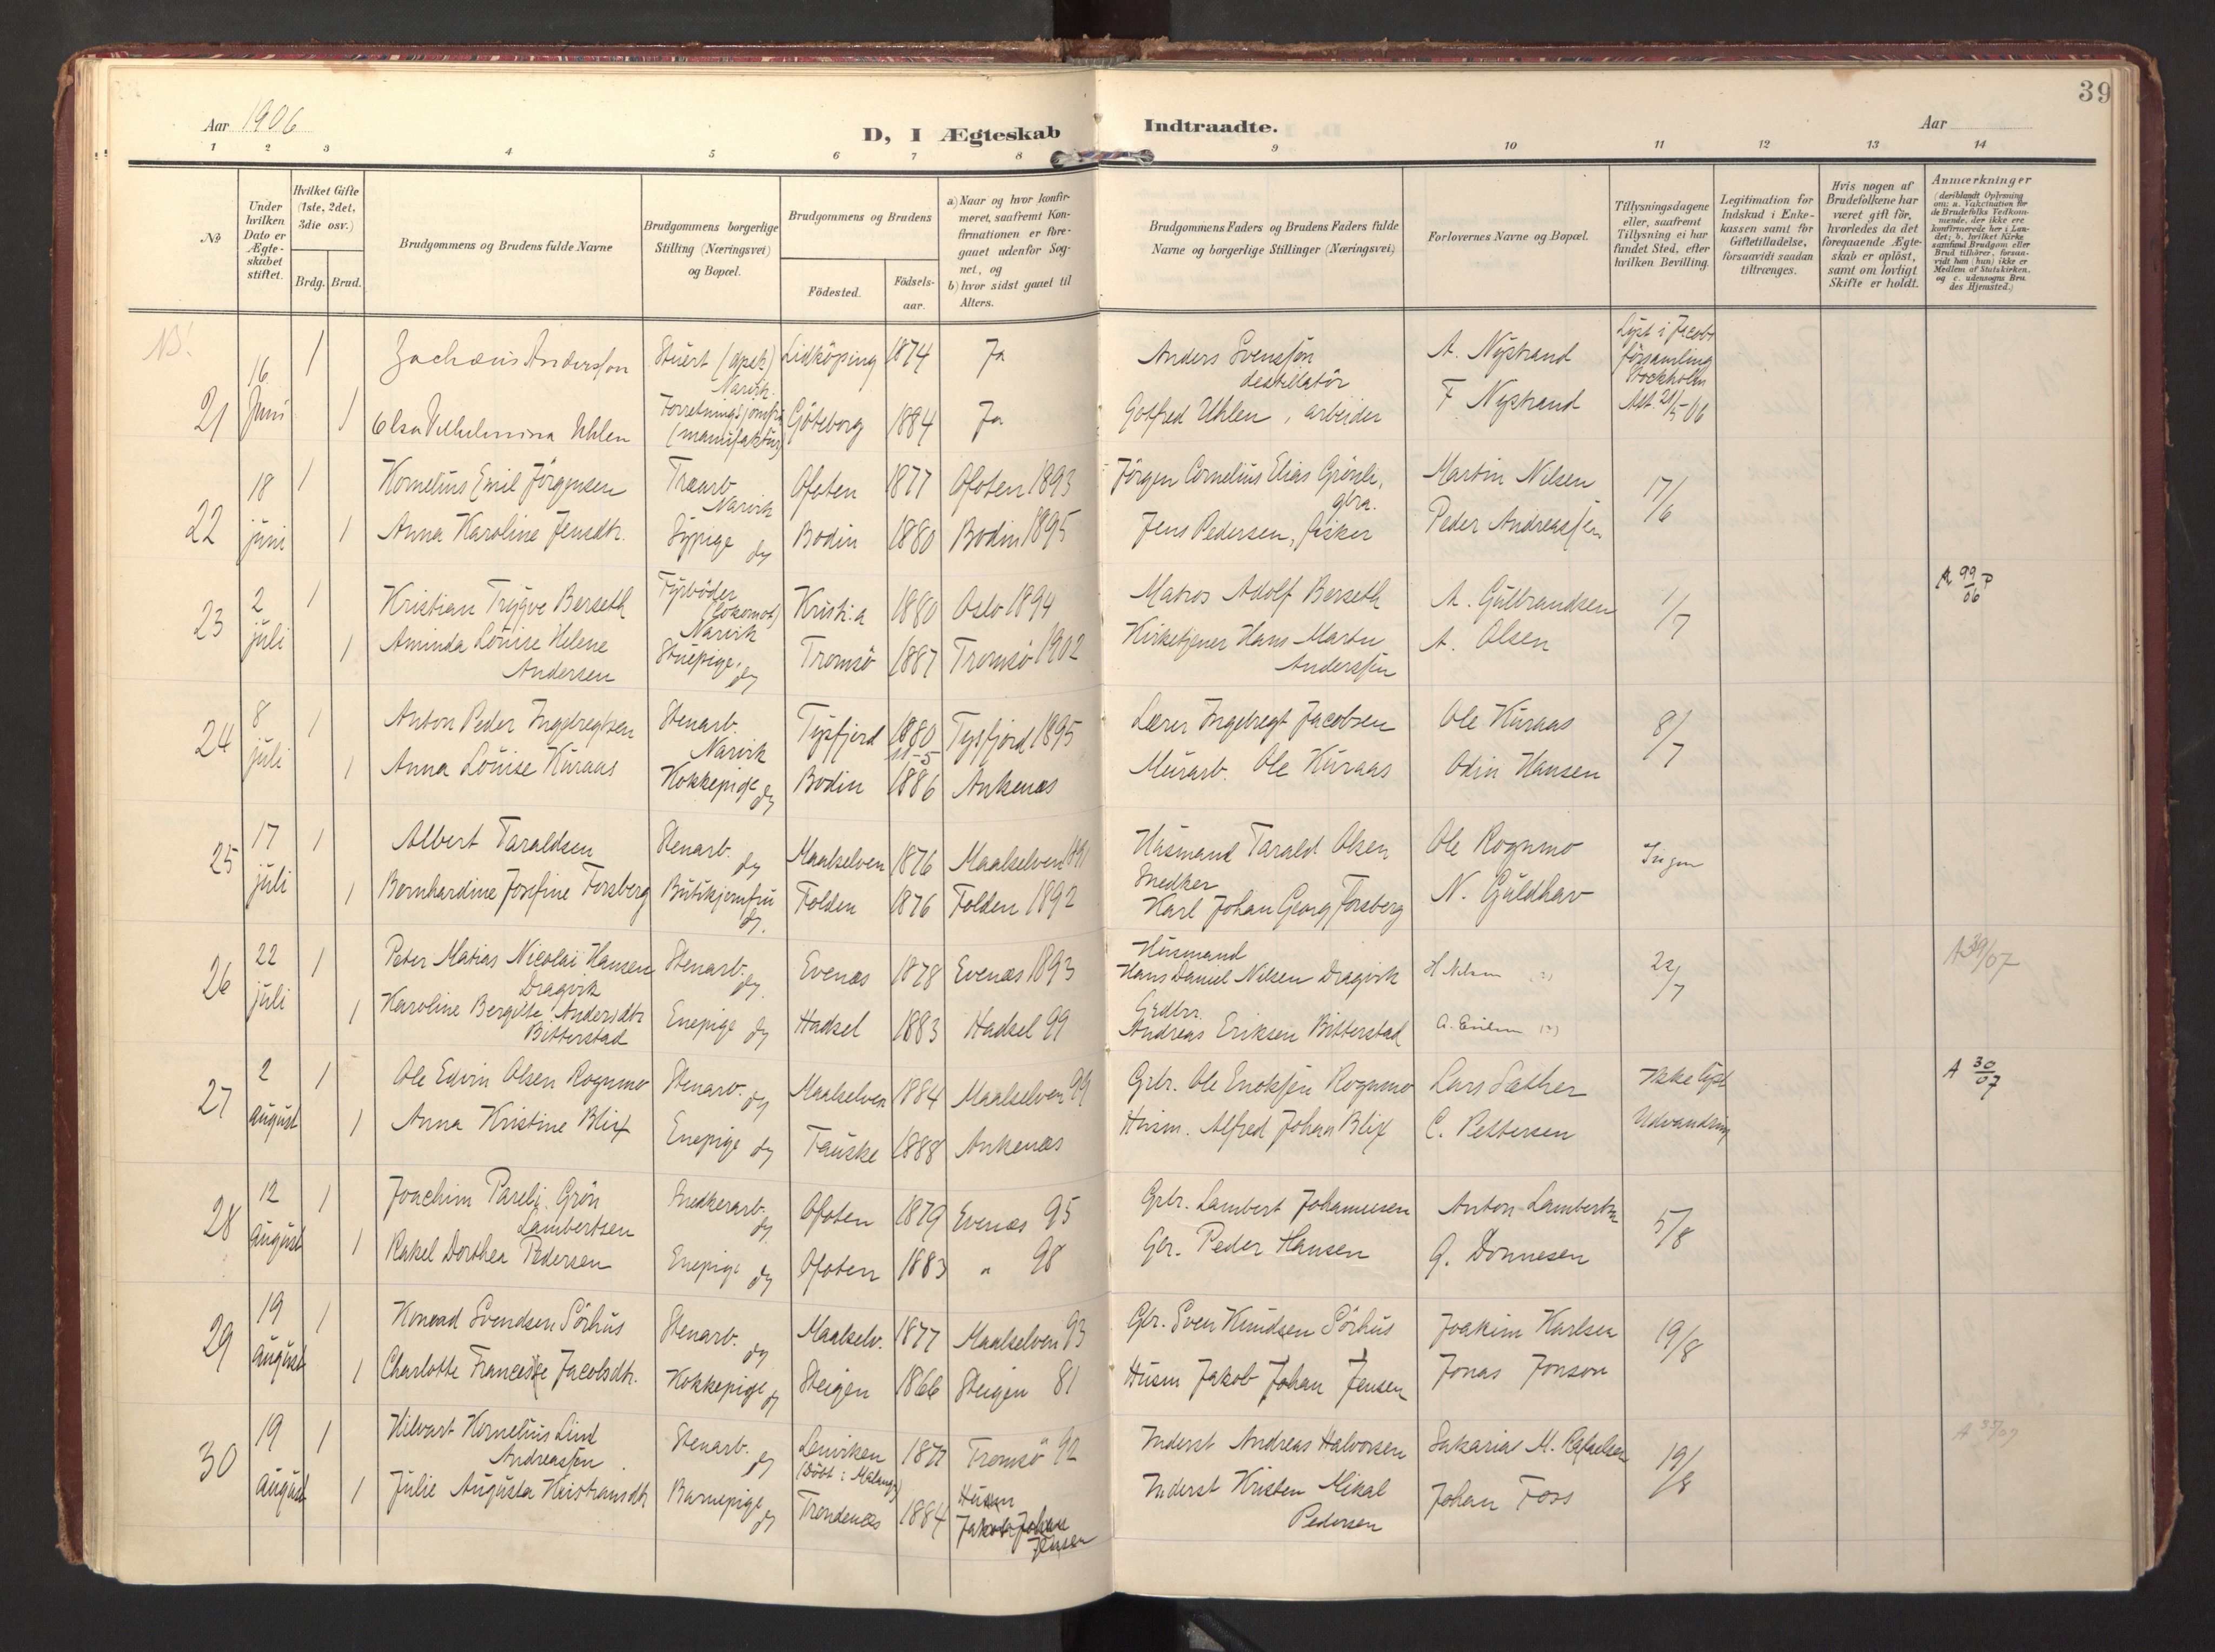 39
Aar 1906
D, I Ægteskab Indtraadte.
Aar
1 2 3 4 5 6 7 8 9 10 11 12 13 14
No
Under hvilken Dato er Ægteskabet stiftet.
Hvilket Gifte (1ste, 2det, 3die osv.)
Brdg. Brud.
Brudgommens og Brudens fulde Navne
Brudgommens borgerlige Stilling (Næringsvei) og Bopæl.
Brudgommens og Brudens
Födested.
Födsels-aar.
a) Naar og hvor konfirmeret, saafremt Konfirmationen er foregaaet udenfor Sognet, og
b) hvor sidst gaaet til Alters.
Brudgommens Faders og Brudens Faders fulde Navne og borgerlige Stillinger (Næringsvei)
Forlovernes Navne og Bopæl.
Tillysningsdagene eller, saafremt Tillysning ei har fundet Sted, efter hvilken Bevilling.
Legitimation for Indskud i Enkekassen samt for Giftetilladelse, forsaavidt saadan tiltrænges.
Hvis nogen af Brudefolkene har været gift för, hvorledes da det foregaaende Ægteskab er oplöst, samt om lovligt Skifte er holdt.
Anmærkninger (deriblandt Oplysning om: a. Vakcination for de Brudefolks Vedkommende, der ikke ere konfirmerede her i Landet; b. hvilket Kirkesamfund Brudgom eller Brud tilhörer, forsaavidt han (hun) ikke er Medlem af Statskirken, og c. udensogns Brudes Hjemsted.)
21 16 Juni 1 Zachæus Andersson Stuert (apek) Narvik Lidköping 1874 Ja Anders Svensson destillatör A. Nystrand Lyst i Jacobs församling Stockholm Att. 21/5-06
1 Elsa Vilhelmina Uhlen Forretningsjomfru (manufaktur) Göteborg 1884 Ja Gotfred Uhlen, arbeider F Nystrand
22 18 juni 1 Kornelius Emil Jörgensen Traarb. Narvik Ofoten 1877 Ofoten 1893 Jörgen Cornelius Elias Grönli, gbr. Martin Nilsen 17/6
1 Anna Karoline Jensdtr. Sypige do Bodin 1880 Bodin 1895 Jens Pedersen, fisker Peder Andreassen
23 2 juli 1 Kristian Trygve Berseth Fyrböder (Lokomot) Narvik Kristi:a 1880 Oslo 1894 Matros Adolf Berseth A. Gulbrandsen 1/7 A 99/06 P
1 Aminda Louise Helene Andersen Stuepige, do Tromsö 1887 Tromsö 1902 Kirketjener Hans Martin Anderssen A. Olsen
24 8 juli 1 Anton Peder Ingebregtsen Stenarb. Narvik Tysfjord 1880 11-5 Tysfjord 1895 Lærer Ingebregt Jacobsen Ole Kuraas 8/7
1 Anna Louise Kuraas Kokkepige do Bodin 1886 Ankenæs Murarb. Ole Kuraas Odin Hansen
25 17 juli 1 Albert Taraldsen Stenarb. do Maalselven 1876 Maalselven 1891 Husmand Tarald Olsen Ole Rognmo Ingen
1 Bernhardine Josefine Forsberg Butikjomfru do. Folden 1876 Folden 1892 Snedker Karl Johan Georg Forsberg N. Guldhav
26 22 juli 1 Peter Matias Nicolai Hansen Dragvik Stenarb. do. Evenæs 1878 Evenæs 1893 Husmand Hans Daniel Nilsen Dragvik H Nilsen 22/7 A 39/07
1 Karoline Bergitte Andersdtr Bitterstad Enepige do Hadsel 1883 Hadsel 99 Grdbr. Andreas Eriksen Bitterstad A. Eriksen (?)
27 2 august 1 Ole Edvin Olsen Rognmo Stenarb. do Maalselven 1884 Maalselven 99 Grbr. Ole Enoksen Rognmo Lars Sæther Ikke lyst Udvandring A 30/07
1 Anna Kristine Blix Enepige do Fauske 1888 Ankenæs Husm. Alfred Johan Blix C. Pettersen
28 12 August 1 Joachim Pareli Grön Lambertsen Snedkerarb. do Ofoten 1879 Evenæs 95 Grbr. Lambert Johannesen Anton Lambertsen 5/8
1 Rakel Dorthea Pedersen Enepige do Ofoten 1883 " 98 Gbr. Peder Hansen G. Dönnesen
29 19 August 1 Konrad Svendsen Sörhus Stenarb. do Maalselv. 1877 Maalselven 93 Gbr. Sven Knudsen Sörhus Joakim Karlsen 19/8
1 Charlotte Jacobsdtr. Kokkepige do Steigen 1866 Steigen 81 Husm Jakob Johan Jensen Jonas Jonson
30 19 August 1 Hilvart Kornelius Lind Andreassen Stenarb. do Lenviken (Döbt i Malang) 1877 Tromsö 92 Inderst Andreas Halvorsen Sakarias M. Rafaelsen 19/8 A 35/07
1 Julie Augusta Kristiansdtr Barnepige do Trondenæs 1884 Husm Jakob Johan Jensen Inderst Kristen Mikal Pedersen Johan Foss